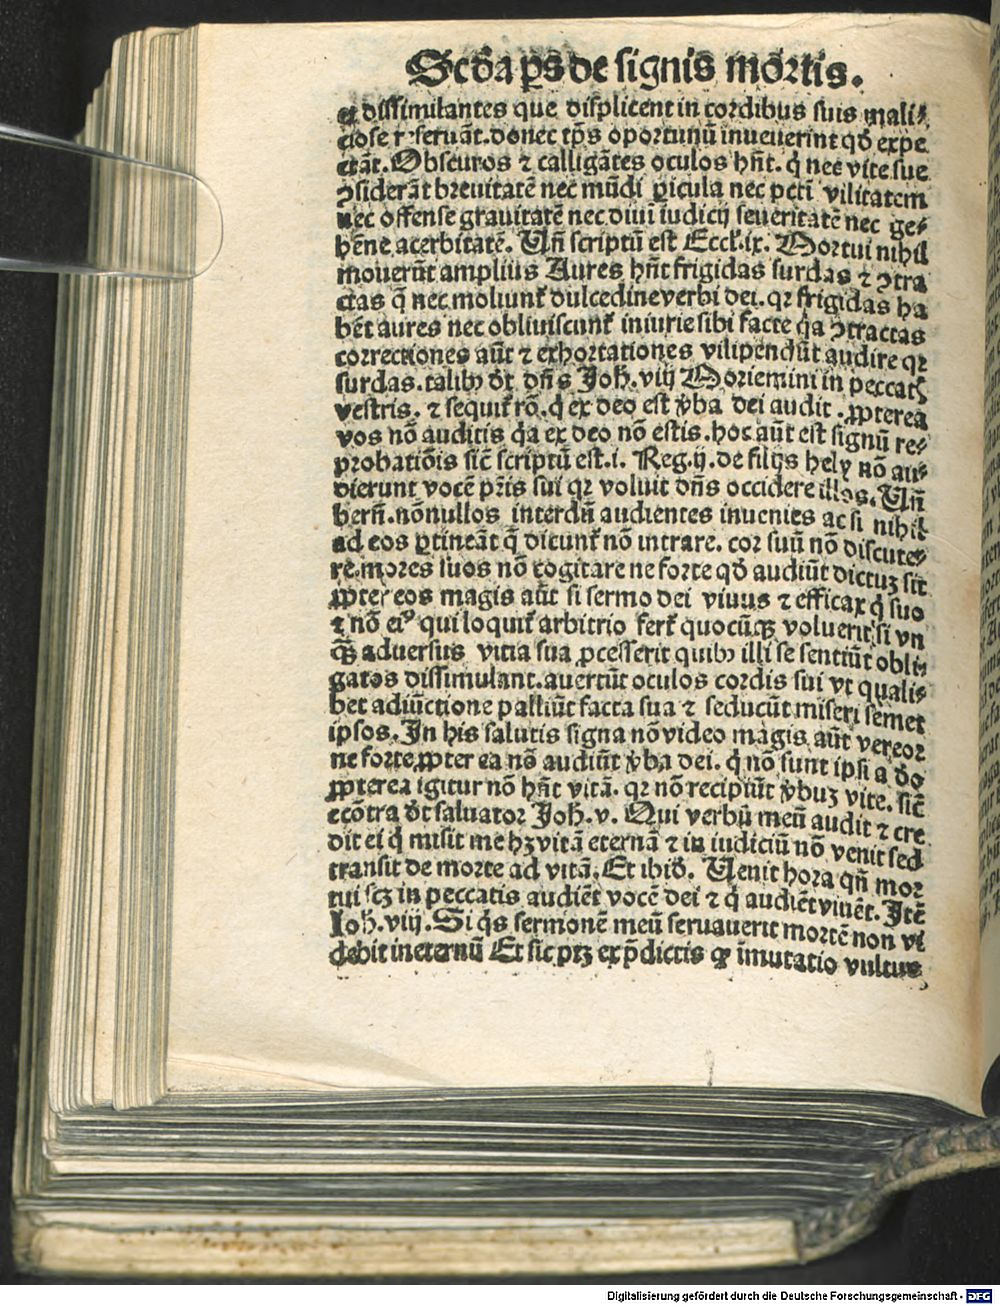 Scd̄a ps de signis mortis.
et dissimilantes que displicent in cordibus suis mali⸗
ciose reseruāt. donec tp̄s oportunū inuenerint qđ expe
ctāt. Obscuros ⁊ calligātes oculos hn̄t. q̇ nec vite sue
ꝯsiderāt breuitatē nec mūdi ꝑicula nec pctī vilitatem
nec offense grauitatē nec diuī iudicij seueritatē nec ge⸗
hēne acerbitatē. Vn̄ scriptū est Eccł. ix. Mortui nihil
mouerūt amplius Aures hn̄t frigidas surdas ⁊ ꝯtra
ctas q̄ nec moliunť dulcedine verbi dei. qꝛ frigidas ha
bēt aures nec obliuiscunť iniurie sibi facte q̇a ꝯtractas
correctiones aūt ⁊ exhortationes vilipendūt audire qꝛ
surdas. talibꝰ dt̄ dn̄s Joh̄. viij Moriemini in peccať
vestris. ⁊ sequiť rō. q̇ ex deo est v̄ba dei audit. ꝓpterea
vos nō auditis q̇a ex deo nō estis. hoc aūt est signū re⸗
probatiōis sic̄ scriptū est. i. Reg. ij. de filijs hely nō au⸗
dierunt vocē pr̄is sui qꝛ voluit dn̄s occidere illos. Vn̄
bern̄. nōnullos interdū audientes inuenies ac si nihil
ad eos ꝑtineāt q̄ dicunť nō intrare. cor suū nō discute⸗
re. mores suos nō cogitare ne forte qđ audiūt dictuꝫ sit
ꝓpter eos magis aūt si sermo dei viuus ⁊ efficax q̇ suo
⁊ nō eiꝰ qui loquiť arbitrio ferť quocūqꝫ voluerit, si vn
q̄ꝫ aduersus vitia sua ꝓcesserit quibꝰ illi se sentiūt obli⸗
gatos dissimulant. auertūt oculos cordis sui vt quali⸗
bet adiūctione palliūt facta sua ⁊ seducūt miseri semet
ipsos. In his salutis signa nō video magis aūt vereor
ne forte ꝓpter ea nō audiūt v̄ba dei. q̇ nō sunt ipsi a dō
ꝓpterea igitur nō hn̄t vitā. qꝛ nō recipiūt v̄buꝫ vite. sic̄
ecōtra dt̄ saluator Joh̄. v. Qui verbū meū audit ⁊ cre
dit ei q̇ misit me hꝫ vitā eternā ⁊ in iudiciū nō venit sed
transit de morte ad vitā. Et ibid̄. Venit hora qn̄ mor
tui scꝫ in peccatis audiēt vocē dei ⁊ q̇ audiēt viuēt. Itē
Joh̄. viij. Si q̇s sermonē meū seruauerit mortē non vi
debit in eternū Et sic ptꝫ ex p̄dictis qꝛ īmutatio vultus
Digitalisierung gefördert durch die Deutsche Forschungsgemeinschaft - DFG